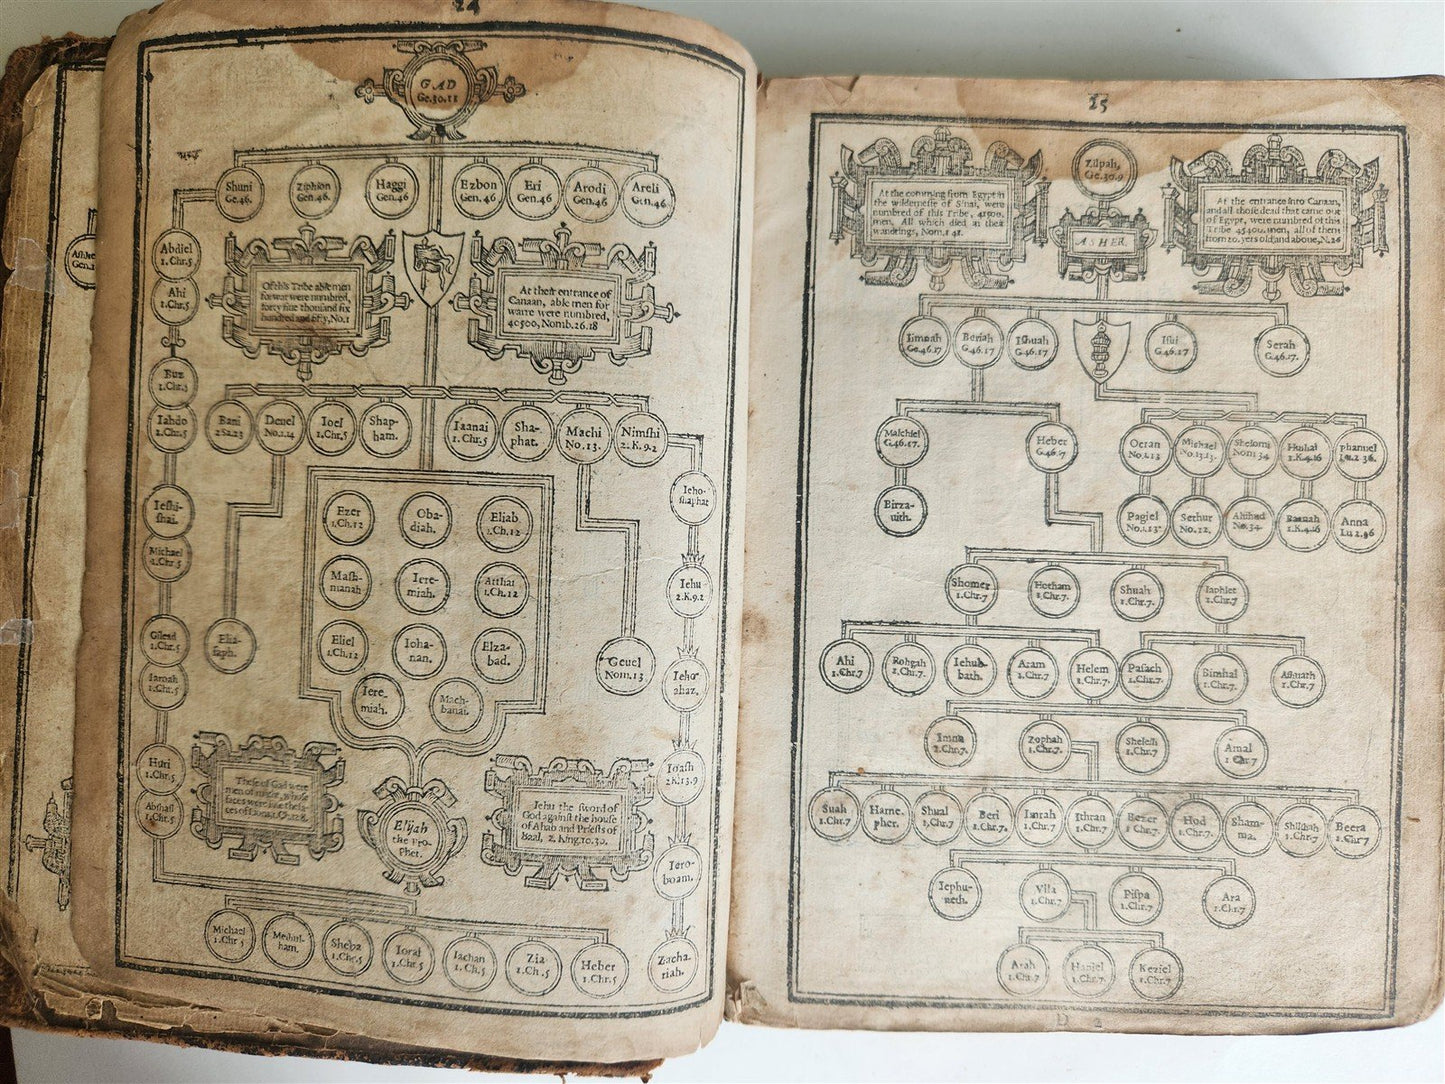 24
GAD
Ge.30.11
Shuni
Ge.46
Ziphion
Gen.46.
Haggi
Gen.46
Ezbon
Gen.46
Eri
Gen.46
Arodi
Gen.46
Areli
Gen.46
Abdiel
1.Chr.5
Ahi
1.Chr.5
Of this Tribe able men
for war were numbred,
forty five thousand six
hundred and fifty, No.1
At their entrance of
Canaan, able men for
warre were numbred,
40500, Nomb.26.18
Buz
1.Chr.5
Iahdo
1.Chr.5
Bani
2 Sa.23
Deuel
No.1.14
Ioel
1.Chr.5
Shap-
ham.
Iaanai
1.Chr.5
Sha-
phat.
Machi
No.13.
Nimshi
2.K.9.2
Ieho-
shaphat
Ieshi-
shai.
Michael
1.Chr.5
Ezer
1.Ch.12
Oba-
diah.
Eliab
1.Ch.12
Mash-
manah
Iere-
miah.
Atthai
1.Ch.12
Iehu
2.K.9.2
Gilead
1.Chr.5
Iaroah
1.Chr.5
Elia-
saph.
Eliel
1.Ch.12
Ioha-
nan.
Elza-
bad.
Geuel
Nom.13
Ieho-
ahaz.
Iere-
miah.
Mach-
banai.
Huri
1.Chr.5
Abihail
1.Chr.5
These of Gad were
men of might, whose
faces were like the fa-
ces of Lions, 1.Ch.12.8.
Elijah
the Pro-
phet.
Iehu the sword of
God against the house
of Ahab and Priests of
Baal, 2. King.10.30.
Ioash
2K.13.9
Iero-
boam.
Michael
1.Chr 5
Meshul-
ham.
Sheba
1.Chr.5
Iorai
1.Chr.5
Iachan
1.Ch.5
Zia
1.Ch.5
Heber
1.Chr.5
Zacha-
riah.
25
At the comming from Egypt in
the wildernesse of Sinai, were
numbred of this Tribe, 41500.
men, All which died in their
wandrings, Nom.1 41.
Zilpah,
Ge.30.9
ASHER.
At the entrance into Canaan,
and all those dead that came out
of Egypt, were numbred of this
Tribe 45400. men, all of them
from 20. yers old, and aboue, N.26
Iimnah
Ge.46.17
Beriah
G.46.17
Ishuah
G.46.17
Isui
G.46.17
Serah
G.46.17.
Malchiel
G.46.17.
Heber
G.46.17
Ocran
No.1.13
Michael
No.13.13.
Shelomi
Nom 34
Hushai
1.K.4.16
Phanuel
Lu.2 36.
Birza-
uith.
Pagiel
No.1.13
Sethur
No.12.
Ahihud
No.34
Baanah
1.K.4.16
Anna
Lu 2.36
Shomer
1.Chr.7
Hotham
1.Chr.7.
Shuah
1.Chr.7.
Iaphlet
1.Chr.7
Ahi
1.Chr.7
Rohgah
1.Chr.7
Iehub-
bath.
Aram
1.Chr.7
Helem
1.Chr.7.
Pasach
1.Chr.7.
Bimhal
1.Chr.7.
Ashuath
1.Chr.7.
Imna
1.Chr.7.
Zophah
1.Chr.7.
Shelesh
1.Chr.7
Amal
1 Chr.7
Suah
1.Chr.7
Harne-
pher.
Shual
1.Chr.7
Beri
1.Chr.7
Imrah
1.Chr.7
Ithran
1.Chr.7
Bezer
1 Chr.7.
Hod
1.Chr.7
Sham-
ma.
Shilshah
1.Chr.7
Beera
1.Chr7
Iephu-
neth.
Vlla
1.Chr.7
Pispa
1.Chr.7
Ara
1.Chr.7
Arah
1.Chr.7
Haniel
1.Chr.7.
Reziel
1.Chr.7
D 2